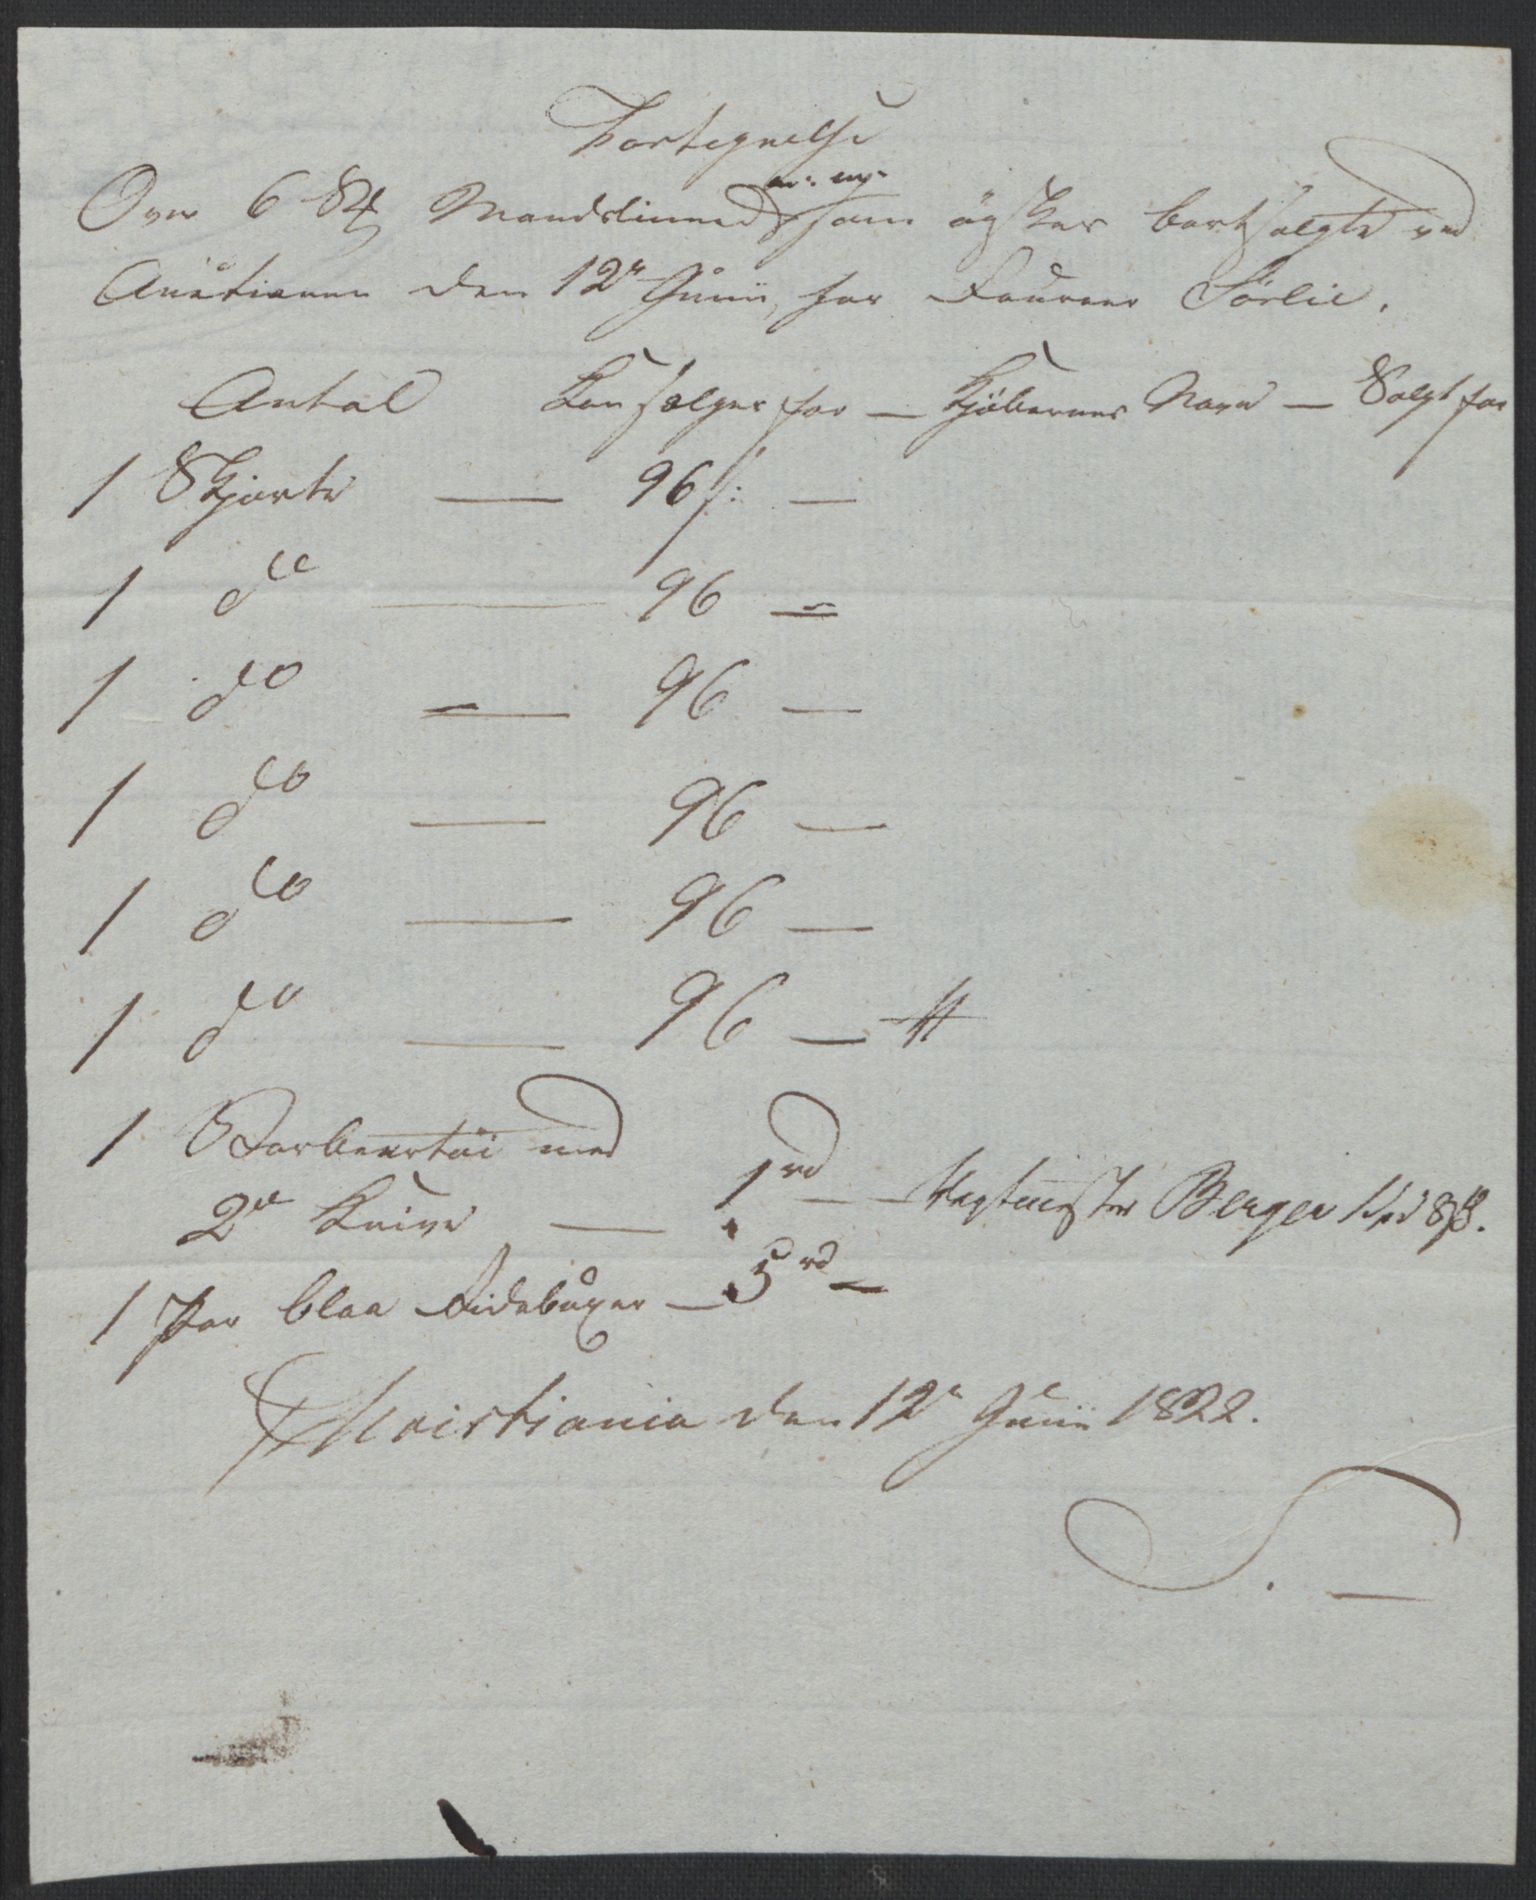 Fortegnelse
Over 6 St Mandslinned som ögsker bortsolgte ved
Auctionen den 12te Junii, for Fourer Sörlie.
Antal Kan sælges for — Kjöbernes Navn — Solgt for
1 Skjorte — 96 s: —
1 do — 96 —
1 do — 96 —
1 do — 96 —
1 do — 96 —
1 do — 96 —
1 Barbeertöi med
2de Knive — 1 rd — Vagtmester Berger 1 rd 8 s.
1 Par blaa Ridebuxer — 5 rd —
Christiania den 12te Junii 1822.
S. —